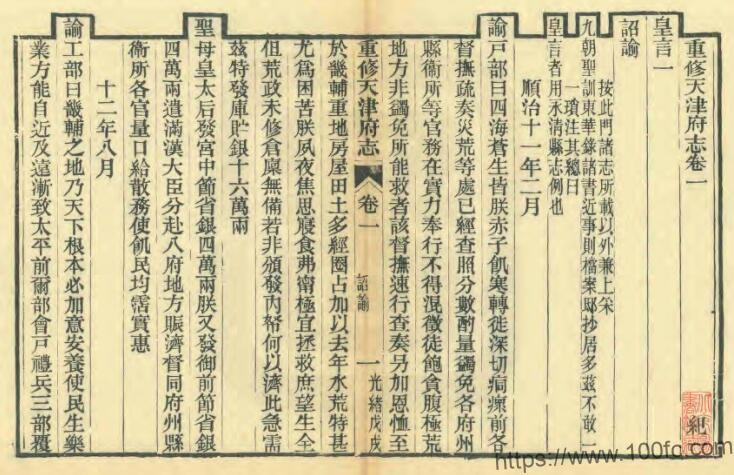 重修天津府志卷一 紀一
皇言一
詔諭
按此門諸志所載以外兼上采
九朝聖訓東華錄諸書近事則檔案邸抄居多茲不敢一
一項注其總曰
皇言者用永清縣志例也
順治十一年二月
諭戶部曰四海蒼生皆朕赤子飢寒轉徙深切痌瘝前各
督撫疏奏災荒等處已經查照分數酌量蠲免各府州
縣衞所等官務在實力奉行不得混徵徒飽貪腹極荒
地方非蠲免所能救者該督撫速行查奏另加恩恤至
重修天津府志 卷一 詔諭 一 光緒戊戌
於畿輔重地房屋田土多經圈占加以去年水荒特甚
尤爲困苦朕夙夜焦思寢食弗甯極宜拯救庶望生全
但荒政未修倉廩無備若非頒發內帑何以濟此急需
茲特發庫貯銀十六萬兩
聖母皇太后發宮中節省銀四萬兩朕又發御前節省銀
四萬兩遣滿漢大臣分赴八府地方賑濟督同府州縣
衞所各官量口給散務使飢民均霑實惠
十二年八月
諭工部曰畿輔之地乃天下根本必加意安養使民生樂
業方能自近及遠漸致太平前爾部會戶禮兵三部覆
https://www.100fc.com